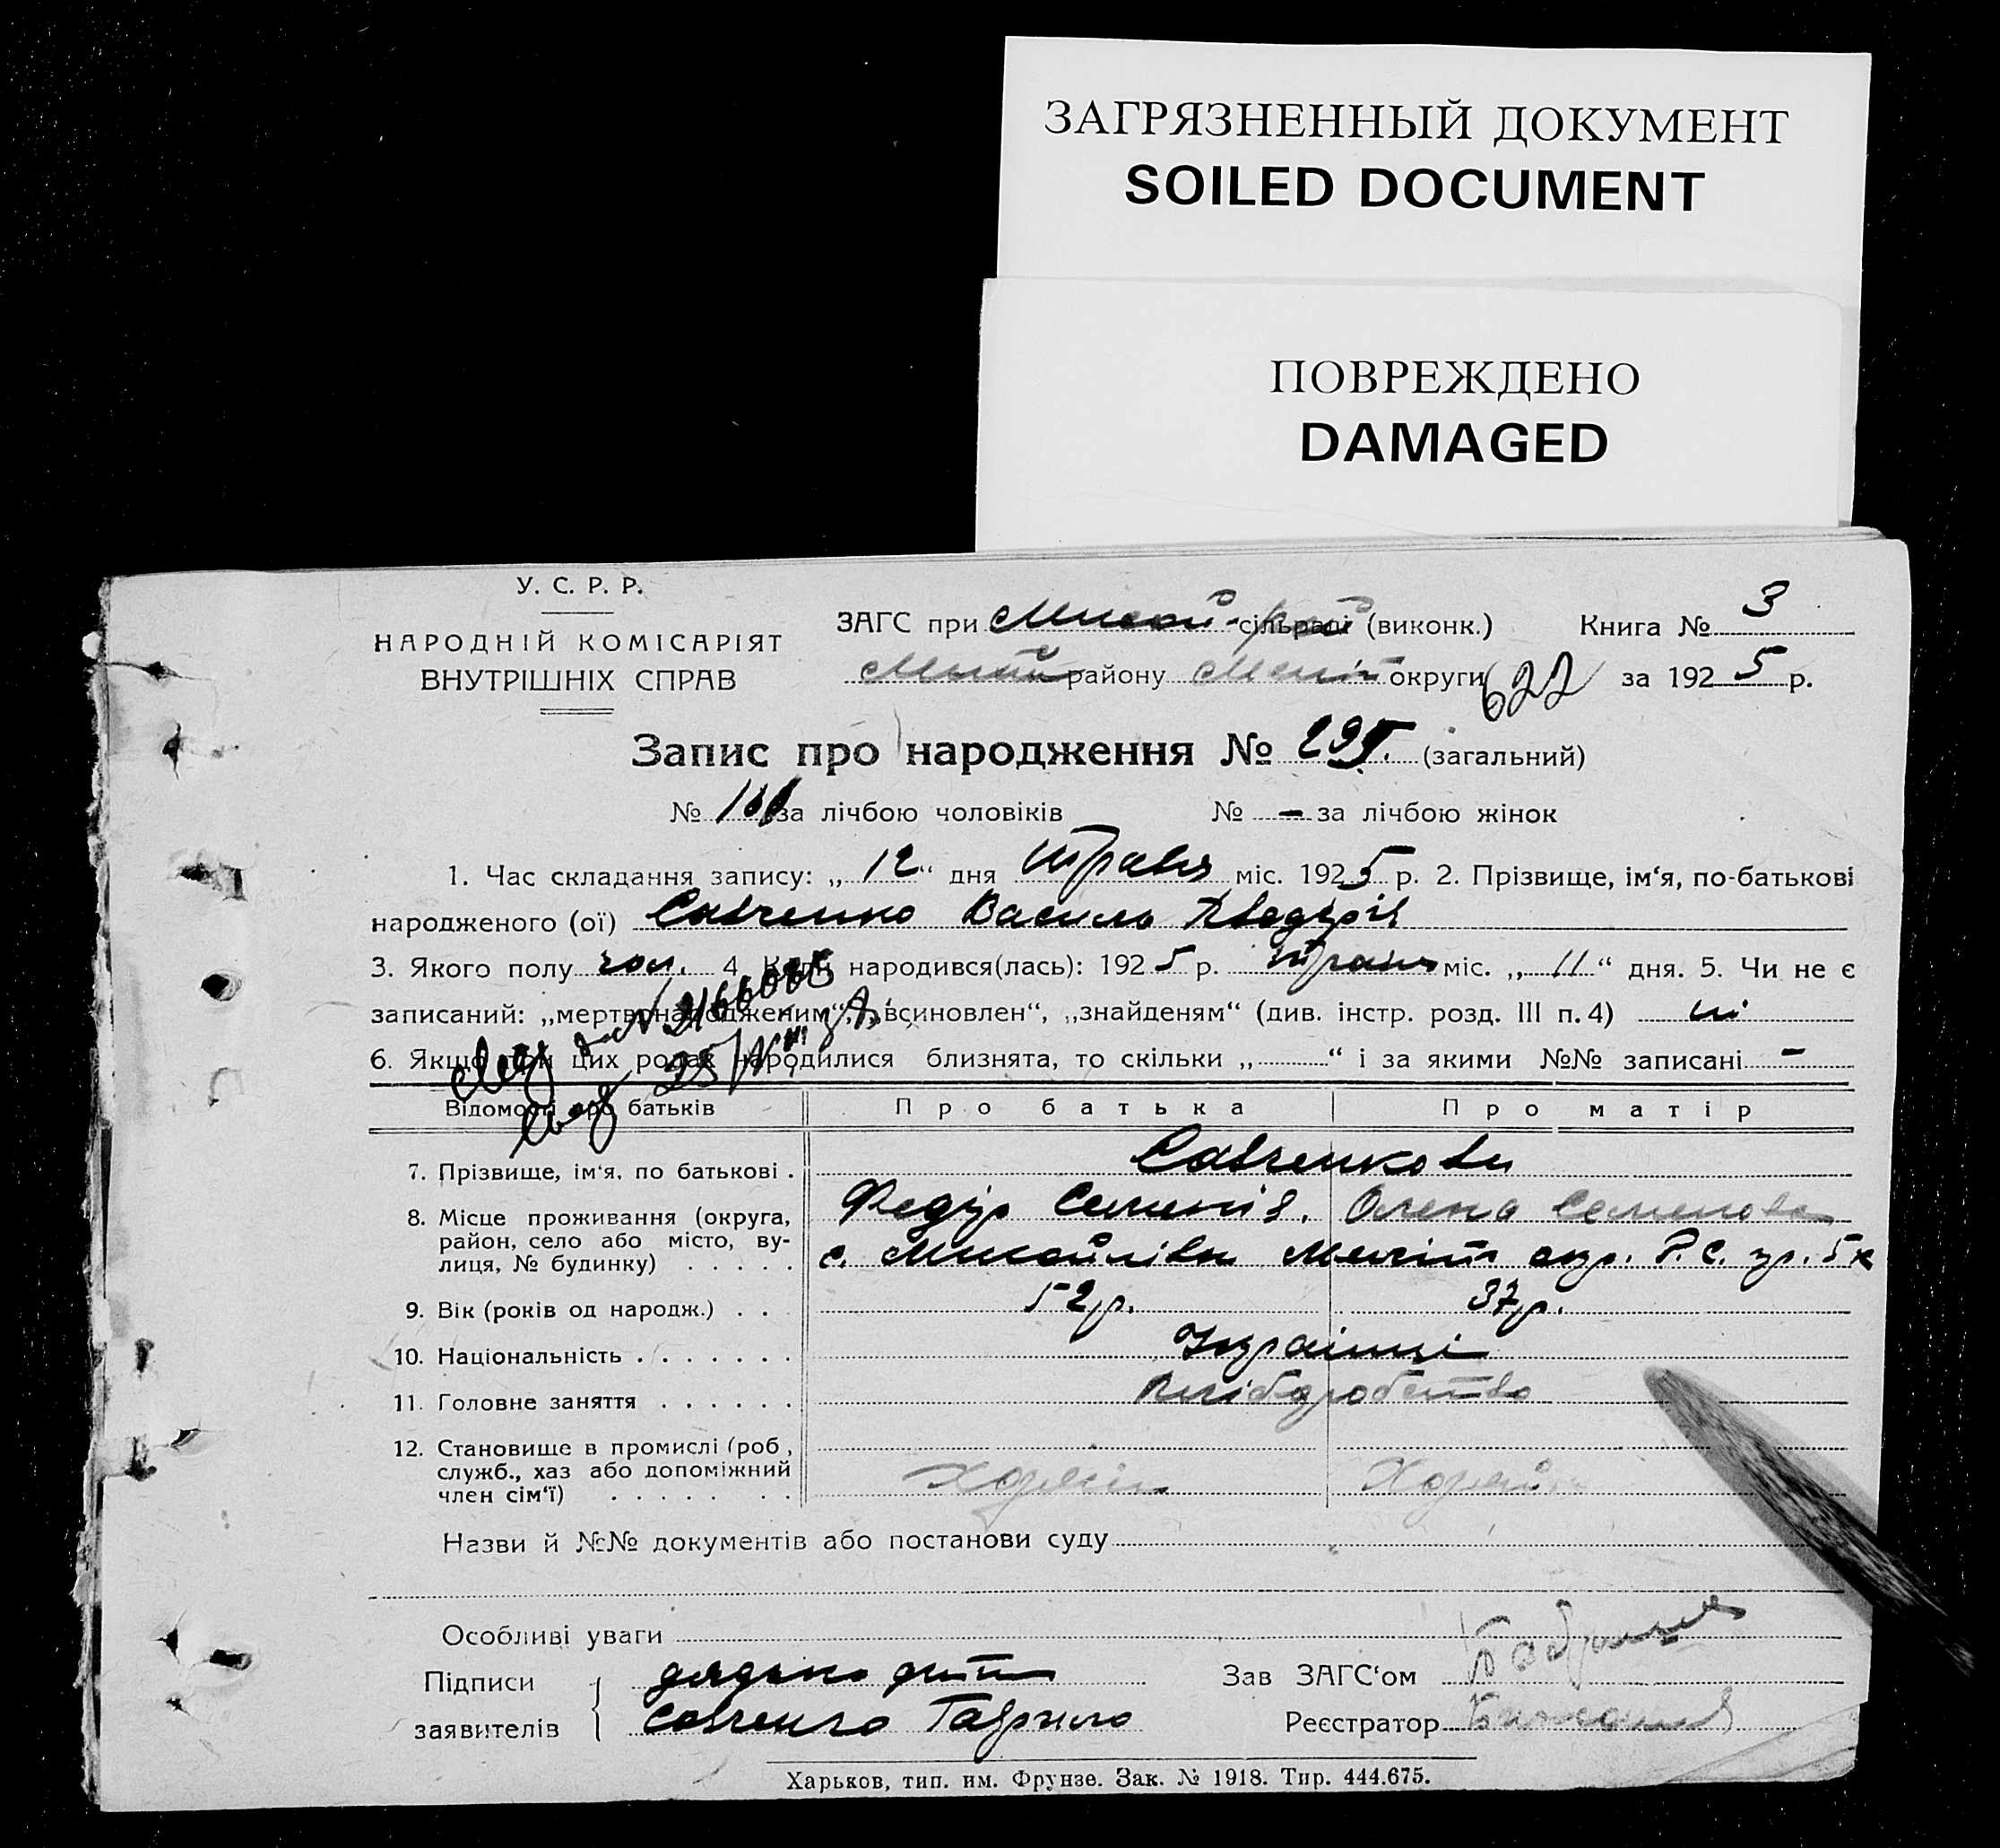 ЗАГРЯЗНЕННЫЙ ДОКУМЕНТ
SOILED DOCUMENT
ПОВРЕЖДЕНО
DAMAGED
У. С. Р. Р.
НАРОДНІЙ КОМІСАРІЯТ
ВНУТРІШНІХ СПРАВ
ЗАГС при сільраді (виконк.) Книга № 3
району округи 622 за 1925 р.
Запис про народження № (загальний)
№ за лічбою чоловіків № – за лічбою жінок
1. Час складання запису: „12“ дня Травня міс. 1925 р. 2. Прізвище, ім‘я, по-батькові
народженого (ої) Савченко Василь
3. Якого полу чол. 4. Коли народився(лась): 1925 р. Травня міс. „11“ дня. 5. Чи не є
записаний: „мертвонародженим“, „всиновлен“, „знайденям“ (див. інстр. розд. III п. 4) ні
6. Якщо при цих родах народилися близнята, то скільки „ “ і за якими №№ записані –
Відомості про батьків Про батька Про матір
7. Прізвище, ім‘я, по батькові . Савченкови
Федір Семенів. Олена Семенова
8. Місце проживання (округа, район, село або місто, вулиця, № будинку) . . . . . с. Михайлівки окр.
9. Вік (років од народж.) . . 52 р. 37 р.
10. Національність . . . . . . . Українці
11. Головне заняття . . . . . . Хліборобство
12. Становище в промислі (роб,
служб., хаз або допоміжний
член сім‘ї) . . . . . . . Хазяїн
Назви й №№ документів або постанови суду
Особливі уваги
Підписи дядько Зав ЗАГС‘ом
заявителів Савченко Гаврило Реєстратор
Харьков, тип. им. Фрунзе. Зак. № 1918. Тир. 444.675.